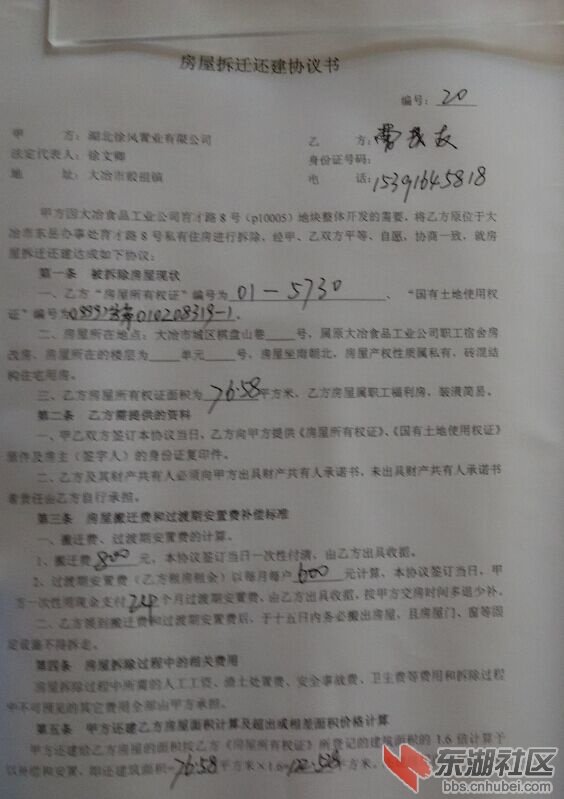 房屋拆迁还建协议书
编号：20
甲 方：湖北徐风置业有限公司 乙 方：
法定代表人：徐文卿 身份证号码：
地 址：大冶市殷祖镇 电 话：15391645818
甲方因大冶食品工业公司育才路8号（p10005）地块整体开发的需要，将乙方原位于大
冶市东岳办事处育才路8号私有住房进行拆除，经甲、乙双方平等、自愿，协商一致，就房
屋拆迁还建达成如下协议：
第一条 被拆除房屋现状
一、乙方“房屋所有权证”编号为 01-5730 、“国有土地使用权
证”编号为 010208319-1.
二、房屋所在地点：大冶市城区棋盘山巷____号，属原大冶食品工业公司职工宿舍房
改房，房屋所在的楼层为____单元____号，房屋坐南朝北，房屋产权性质属私有，砖混结
构住宅用房。
三、乙方房屋所有权证面积为 76.58 平方米，乙方房屋属职工福利房，装潢简易。
第二条 乙方需提供的资料
一、甲乙双方签订本协议当日，乙方向甲方提供《房屋所有权证》、《国有土地使用权证》
原件及房主（签字人）的身份证复印件。
二、乙方及其财产共有人必须向甲方出具财产共有人承诺书，未出具财产共有人承诺书
者责任由乙方自行承担。
第三条 房屋搬迁费和过渡期安置费补偿标准
一、搬迁费、过渡期安置费的计算。
1、搬迁费 800 元，本协议签订当日一次性付清，由乙方出具收据。
2、过渡期安置费（乙方租房租金）以每月每户 600 元计算，本协议签订当日，甲
方一次性用现金支付 24 个月过渡期安置费，由乙方出具收据，按甲方交房时间多退少补。
二、乙方领到搬迁费和过渡期安置费后，于十五日内务必搬出房屋，且房屋门、窗等固
定设施不得拆走。
第四条 房屋拆除过程中的相关费用
房屋拆除过程中所需的人工工资、渣土处置费、安全事故费、卫生费等费用和拆除过程
中不可预见的其它费用全部由甲方承担。
第五条 甲方还建乙方房屋面积计算及超出或相差面积价格计算
甲方还建给乙方房屋的面积按乙方《房屋所有权证》所登记的建筑面积的1.6倍计算予
以补偿和安置，即还建筑面积= 76.58 平方米×1.6= 122.528 平方米。
东湖社区
bbs.cnhubei.com